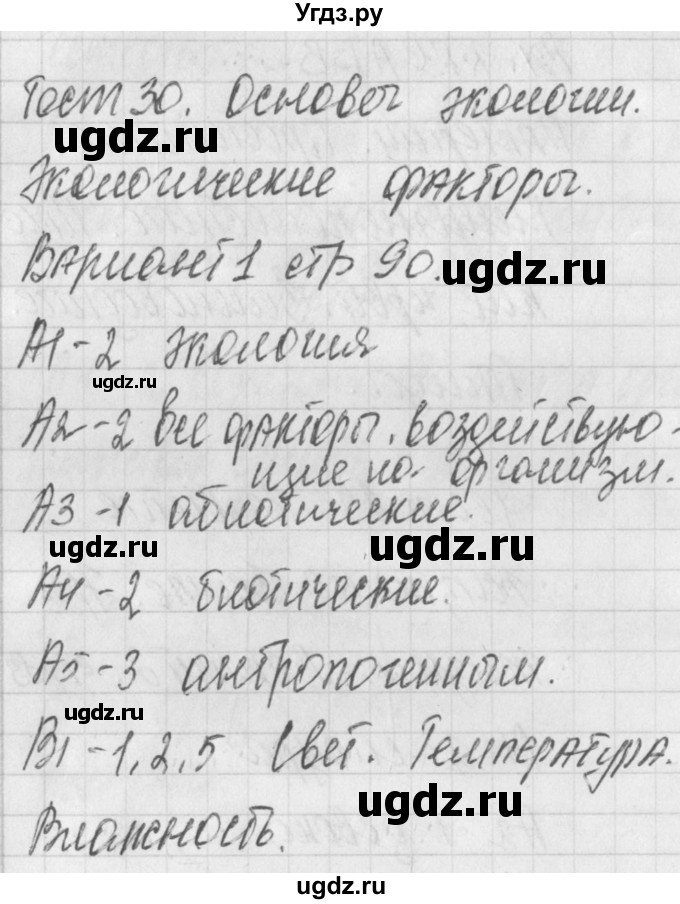 Угдз.ру
Тест 30. Основы экологии.
ugdz.ru
Экологические факторы.
Вариант 1 стр 90.
ugdz.ru
А1-2 экология
ugdz.ru
А2-2 все факторы, воздействую-
щие на организм.
А3-1 абиотические.
ugdz.ru
ugdz.ru
А4-2 биотические.
А5-3 антропогенным.
ugdz.ru
В1-1,2,5 Свет. Температура.
ugdz.ru
Влажность.
ugdz.ru